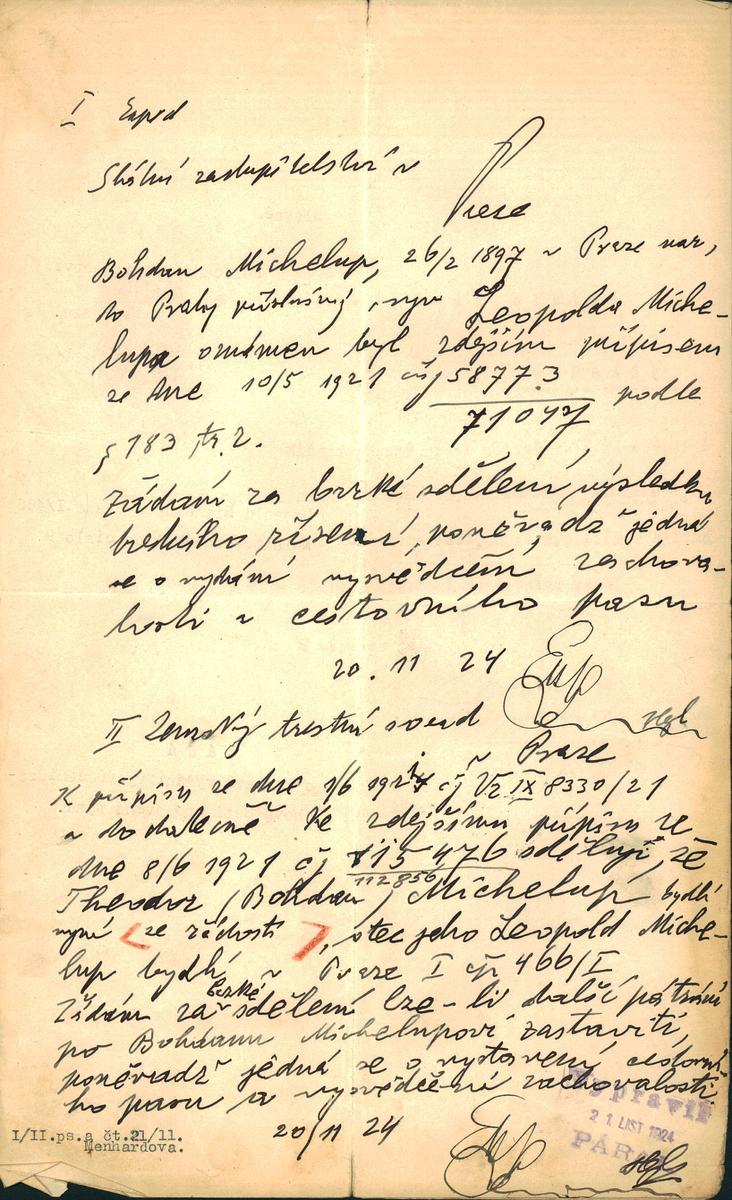 I
Státní zastupitelství v
Praze
Bohdan Michelup, 26/2 1897 v Praze nar,
do Prahy příslušný, syn Leopolda Miche-
lupa oznámen byl zdejším přípisem
ze dne 10/5 1921 čj 58773
71047 podle
§ 183 tr. z.
Žádám za brzké sdělení výsledku
trestního řízení, poněvadž jedná
se o vydání vysvědčení zachova-
losti a cestovního pasu
20. 11 24
II Zemský trestní soud
v Praze
K přípisu ze dne 1/6 1921 čj Vr IX 8330/21
a dodatečně ke zdejšímu přípisu ze
dne 8/6 1921 čj 115 476 sděluji, že
112856
Theodor (Bohdan) Michelup bydlí
nyní < ze žádosti >, otec jeho Leopold Miche-
lup bydlí v Praze I čp 466/I
Žádám za brzké sdělení lze-li další pátrání
po Bohdanu Michelupovi zastaviti,
poněvadž jedná se o vystavení cestovní-
ho pasu a vysvědčení zachovalosti
20/11 24
Vypravil
21 LIST 1924
I/II.ps.a čt.21/11.
Menhardova.